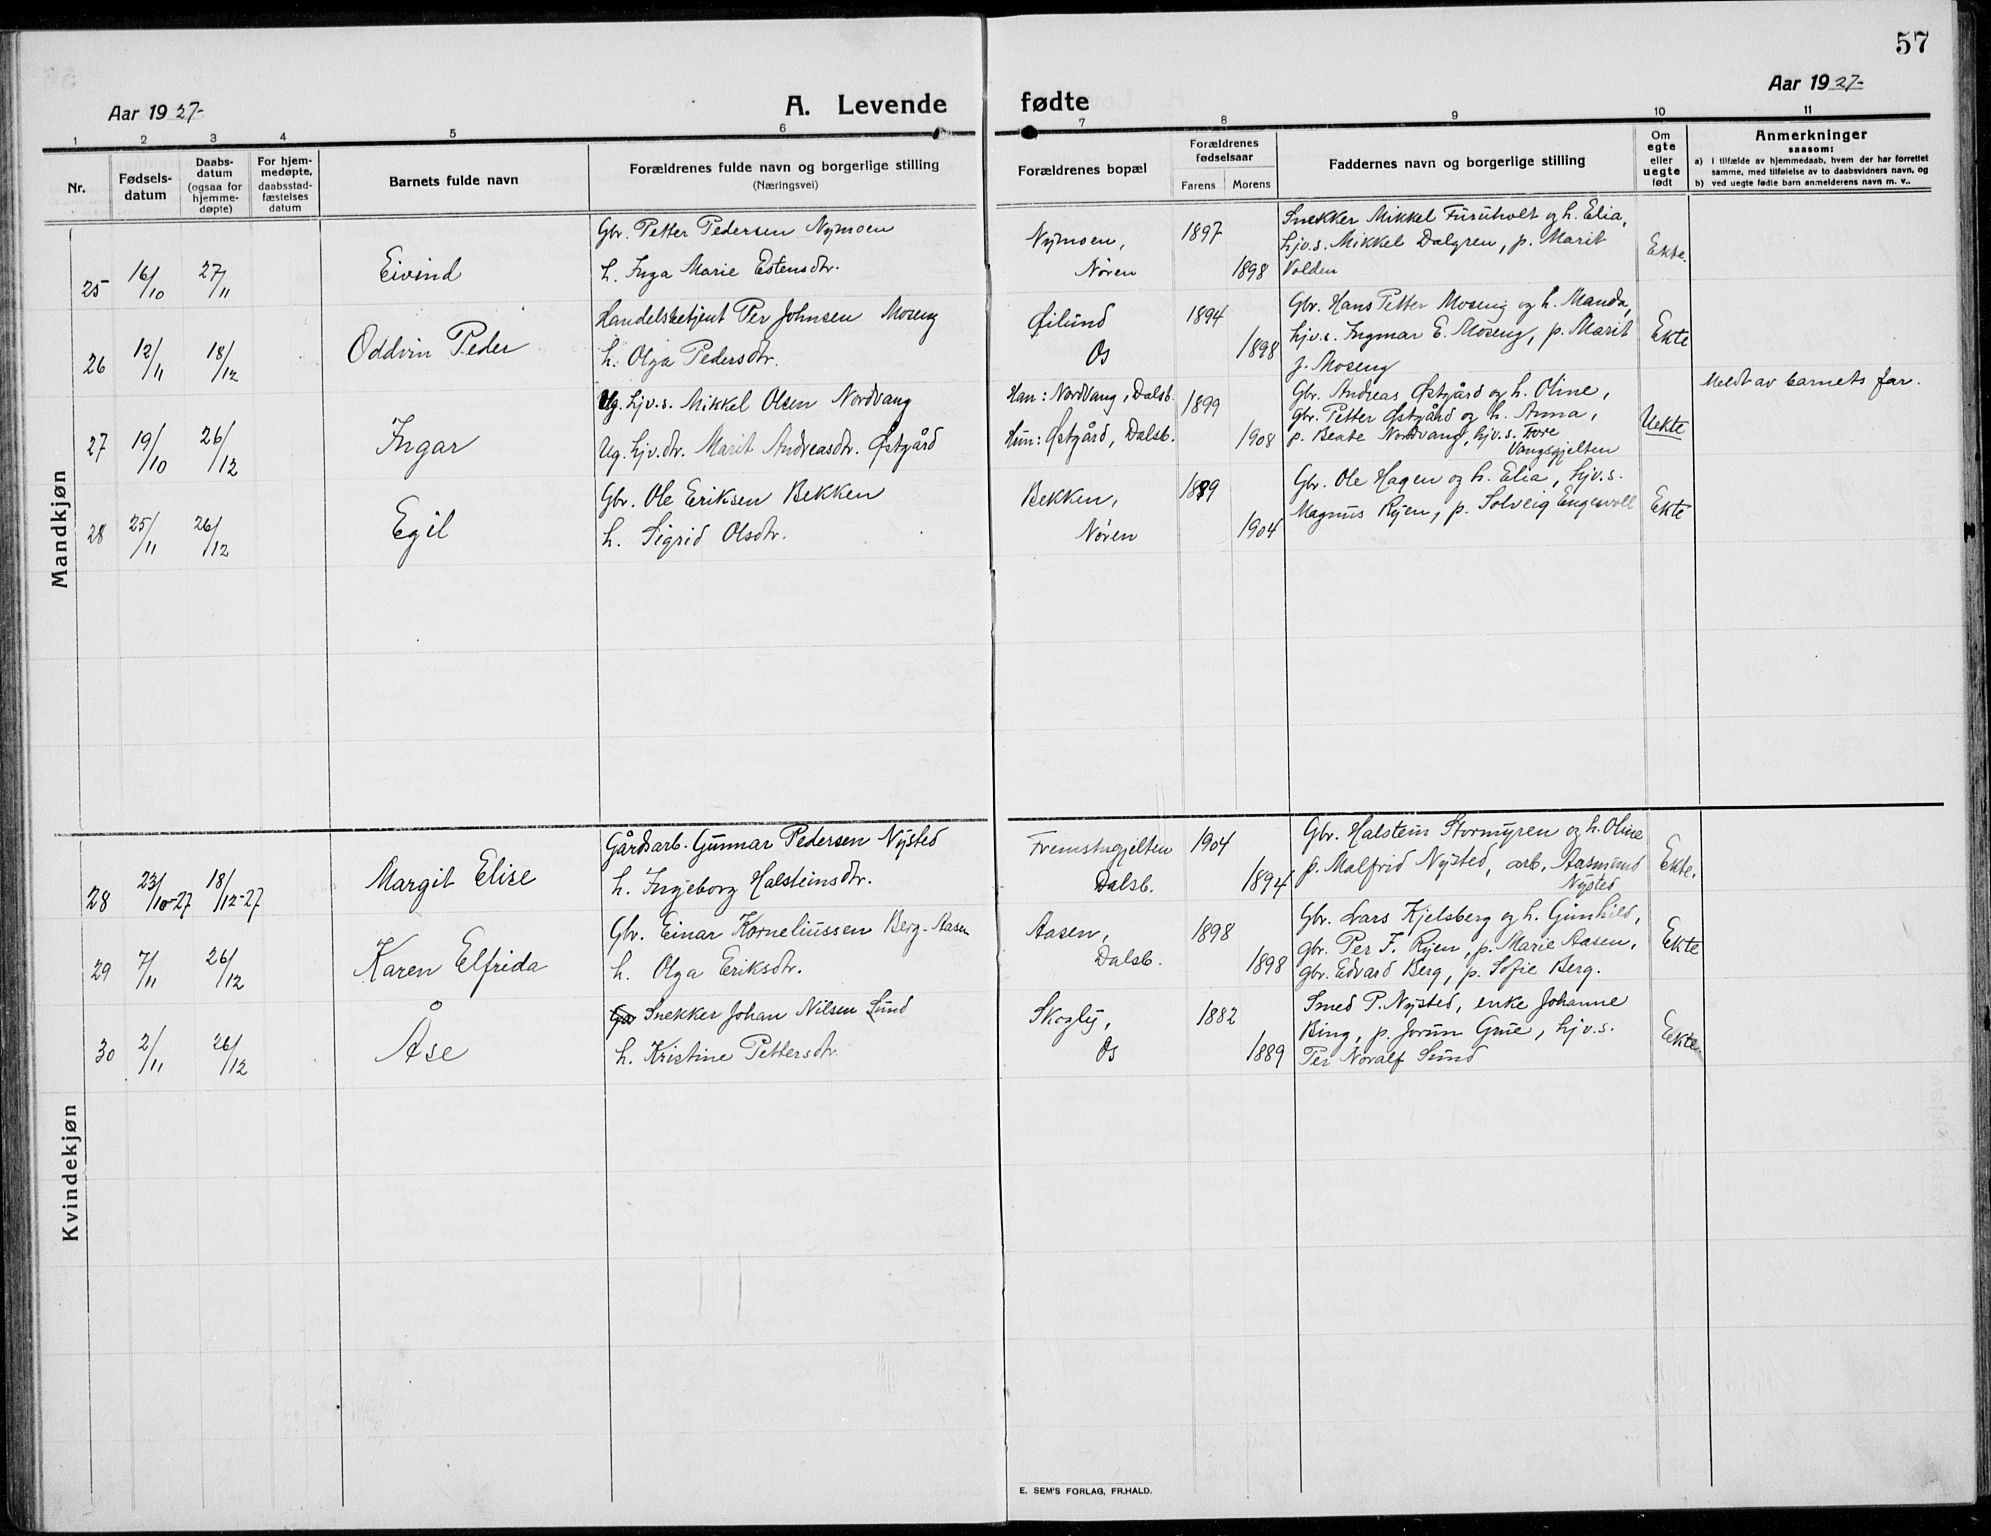 57
Aar 1927-
A. Levende fødte
Aar 1927-
1 2 3 4 5 6 7 8 9 10 11
Nr.
Fødsels-
datum
Daabs-
datum
(ogsaa for
hjemme-
døpte)
For hjem-
medøpte,
daabsstad-
fæstelses
datum
Barnets fulde navn
Forældrenes fulde navn og borgerlige stilling
(Næringsvei)
Forældrenes bopæl
Forældrenes
fødselsaar
Farens Morens
Faddernes navn og borgerlige stilling
Om
egte
eller
uegte
født
Anmerkninger
saasom:
a) I tilfælde av hjemmedaab, hvem der har forrettet
samme, med tilføielse av to daabsvidners navn, og
b) ved uegte fødte barn anmelderens navn m. v..
Mandkjøn
25 16/10 27/11 Eivind
Gbr. Petter Pedersen Nymoen
h. Inga Marie Estensdtr.
Nymoen,
Nøren
1897
1898
Snekker Mikkel Furuholt og h. Elia,
hjv.s. Mikkel Dalgren, p. Marit
Volden
Ekte.
26 12/11 18/12 Oddvin Peder
Handelsbetjent Per Johnsen Moseng
h. Olga Pedersdtr.
Øilund
Os
1894
1898
Gbr. Hans Petter Moseng og h. Manda,
hjv.s. Ingmar E. Moseng, p. Marit
J. Moseng
Ekte
27 19/10 26/12 Ingar
Ug. hjv.s. Mikkel Olsen Nordvang
Ug. hjv.dtr. Marit Andreasdtr. Østgård
Han: Nordvang, Dalsb.
Hun: Østgård, Dalsb.
1899
1908
Gbr. Andreas Østgård og h. Oline,
gbr. Petter Østgård og h. Anna,
p. Beate Nordvang, hjv.s. Tore
Vangsgjelten
Uekte
Meldt av barnets far.
28 25/11 26/12 Egil
Gbr. Ole Eriksen Bekken
h. Sigrid Olsdtr.
Bekken,
Nøren
1889
1904
Gbr. Ole Hagen og h. Elia, hjv.s.
Magnus Ryen, p. Solveig Engenvoll
Ekte
Kvindekjøn
28 23/10-27 18/12-27 Margit Elise
Gårdsarb. Gunnar Pedersen Nysted
h. Ingeborg Halsteinsdtr.
Fremstugjelten
Dalsb.
1904
1894
Gbr. Halstein Stormyren og h. Oline
p. Malfrid Nysted, arb. Aasmund
Nysted
Ekte.
29 7/11 26/12 Karen Elfrida
Gbr. Einar Korneliussen Berg-Aasen
h. Olga Eriksdtr.
Aasen,
Dalsb.
1898
1898
Gbr. Lars Kjelsberg og h. Gunhild,
gbr. Per F. Ryen, p. Marie Aasen,
gbr. Edvard Berg, p. Sofie Berg.
Ekte
30 2/11 26/12 Åse
Snekker Johan Nilsen Sund
h. Kristine Pettersdtr.
Skogly,
Os
1882
1889
Smed P. Nysted, enke Johanne
Bing, p. Jorun Grue, hjv.s.
Per Noralf Sund
Eekte
E. SEM'S FORLAG, FR.HALD.